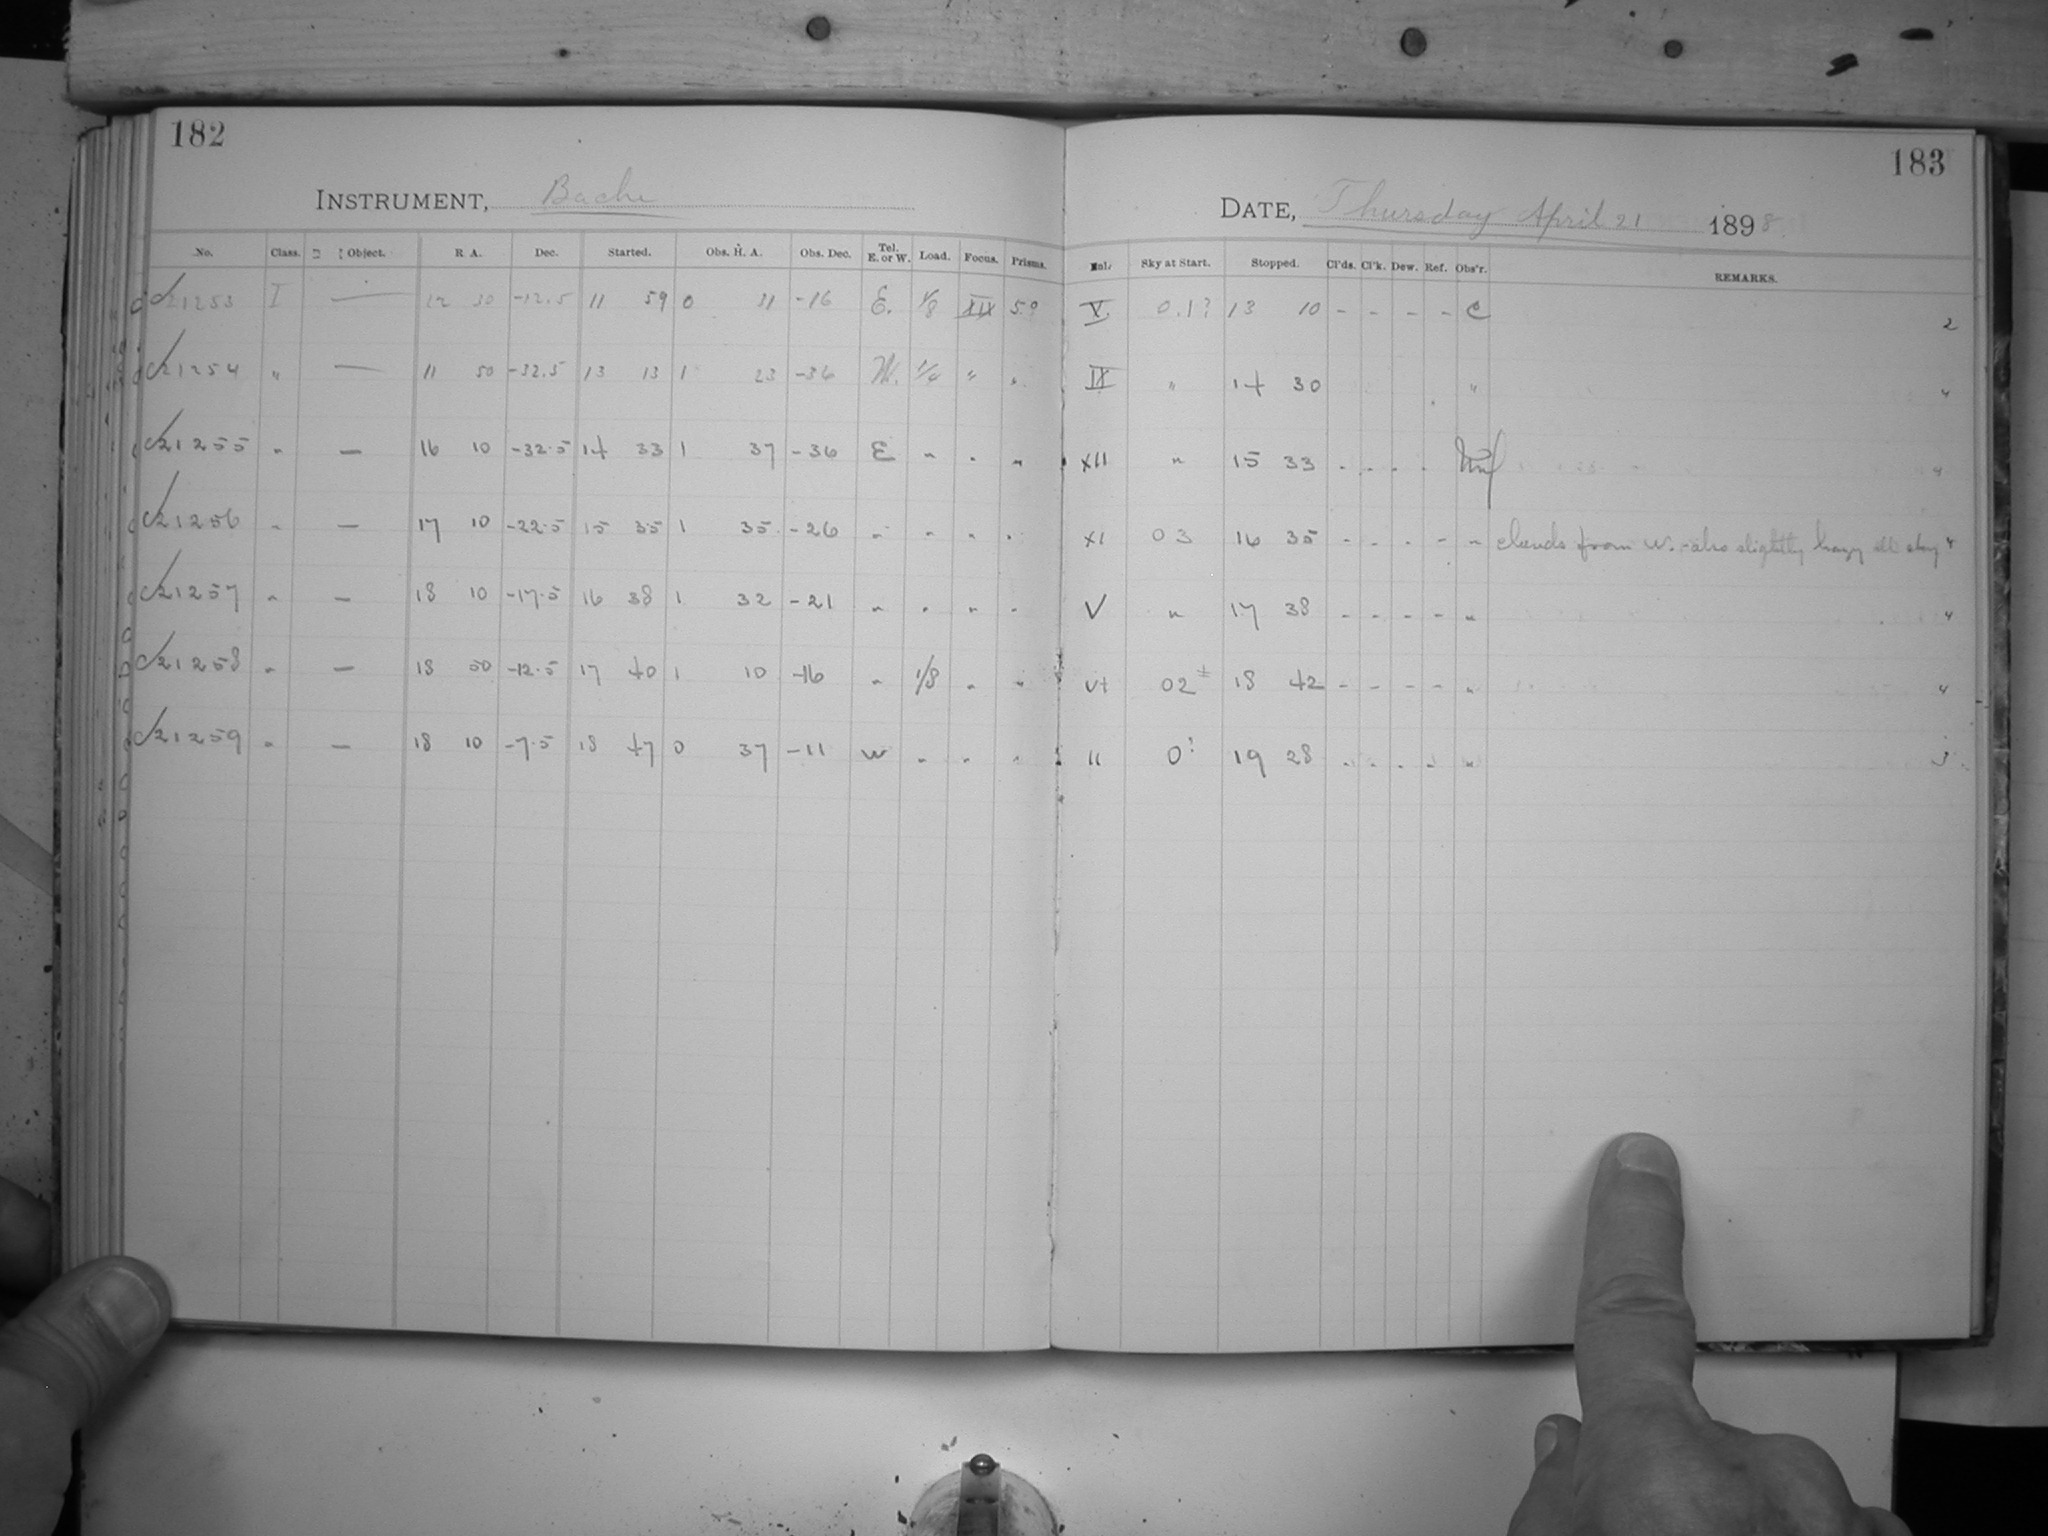 182
183
INSTRUMENT, Bache
DATE, Thursday April 21 1898.
No. Class. Object. R A. Dec. Started. Obs. H. A. Obs. Dec. Tel. E. or W. Load. Focus. Prisms. Sky at Start. Stopped. Cl'ds. Cl'k. Dew. Ref. Obs'r. REMARKS.
21253 I — 12 30 -12.5 11 59 0 31 -16 E. 1/8 XIX 5? V. 0.1? 13 10 - - - - C 2
21254 " — 11 50 -32.5 13 13 1 23 -36 W. 1/4 " " IX " 14 30 " 4
21255 " — 16 10 -32.5 14 33 1 37 -36 E " " " XII " 15 33 - - - - 4
21256 " — 17 10 -22.5 15 35 1 35 -26 " " " " XI 03 16 35 - - - - " clouds from W. - also slightly hazy all sky 4
21257 " — 18 10 -17.5 16 38 1 32 -21 " " " " V " 17 38 - - - - " 4
21258 " — 18 50 -12.5 17 40 1 10 -16 " 1/8 " " VI 02± 18 42 - - - - " 4
21259 " — 18 10 -7.5 18 47 0 37 -11 W " " " II 0? 19 28 - - - - "